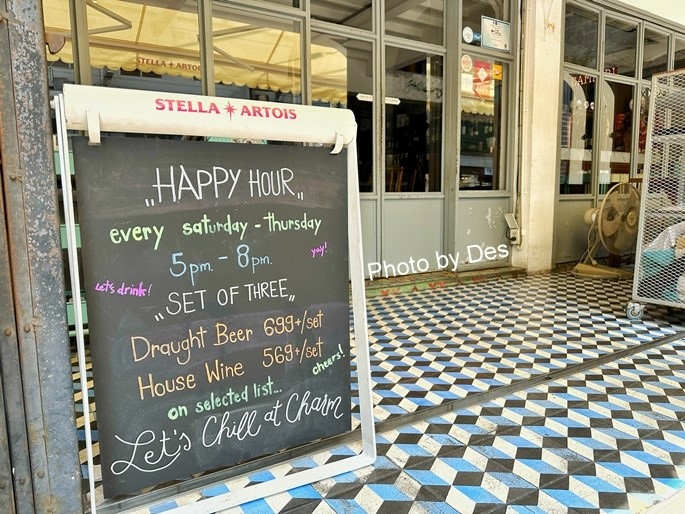 STELLA ARTOIS
STELLA ARTOIS
"HAPPY HOUR"
every saturday - thursday
5pm. - 8pm.
yay!
Let's drink!
"SET OF THREE"
Draught Beer 699+/set
House Wine 569+/set
cheers!
on selected list...
Let's Chill at Charm
Photo by Des